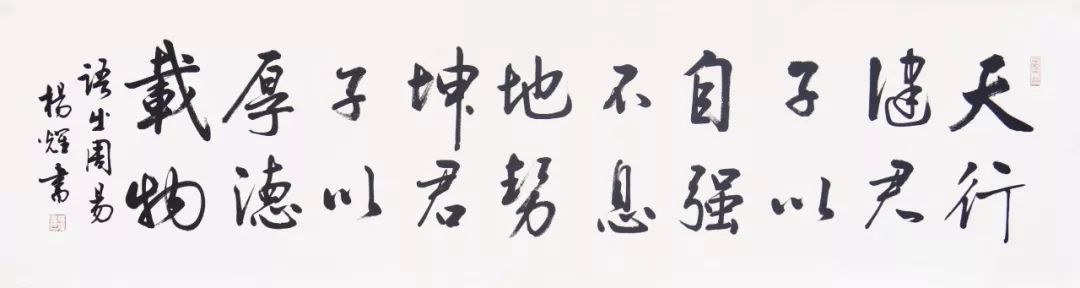 天行
健君
子以
自强
不息
地勢
坤君
子以
厚德
載物
語出周易
楊書